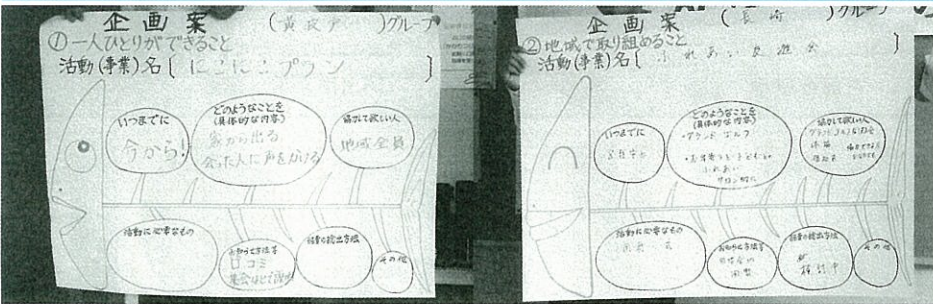 企画案
グループ
①一人ひとりができること
活動(事業)名〔にこにこプラン〕
いつまでに
今から!
どのようなことを
(具体的な内容)
家から出る
会った人に声をかける
協力して欲しい人
地域全員
活動に必要なもの
お知らせ方法等
口コミ
集会などで
経費の捻出方法
その他
企画案
(長崎)グループ
②地域で取り組めること
活動(事業)名〔ふれあい交流会〕
いつまでに
どのようなことを
(具体的な内容)
・グランドゴルフ
・お年寄りと子どもの
ふれあい
協力して欲しい人
活動に必要なもの
お知らせ方法等
経費の捻出方法
検討中
その他